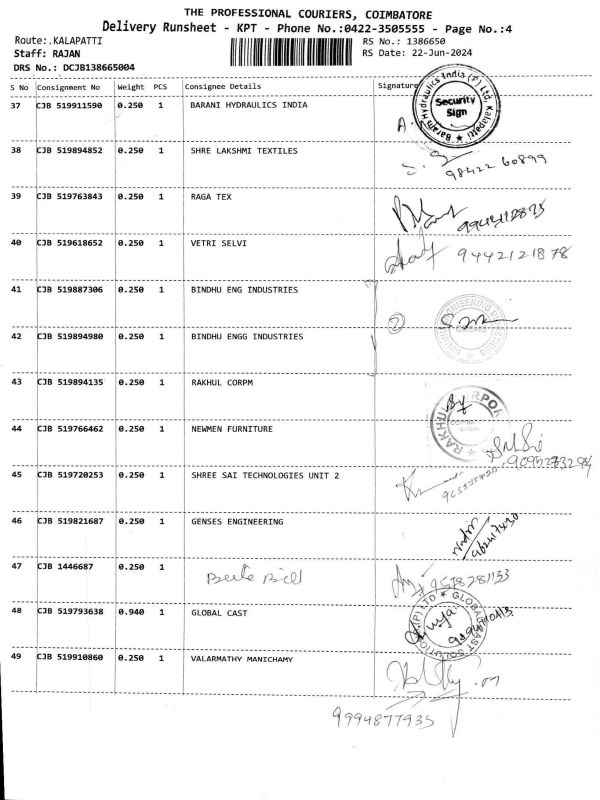 THE PROFESSIONAL COURIERS, COIMBATORE
Delivery Runsheet - KPT - Phone No.:0422-3505555 - Page No.:4
Route:.KALAPATTI RS No.: 1386650
Staff: RAJAN RS Date: 22-Jun-2024
DRS No.: DCJB138665004
S No Consignment No Weight PCS Consignee Details Signature
37 CJB 519911590 0.250 1 BARANI HYDRAULICS INDIA
Barani Hydraulics India (P) Ltd, Kalapatti
Security
Sign
38 CJB 519894852 0.250 1 SHRE LAKSHMI TEXTILES
98422 60899
39 CJB 519763843 0.250 1 RAGA TEX
40 CJB 519618652 0.250 1 VETRI SELVI
9442121878
41 CJB 519887306 0.250 1 BINDHU ENG INDUSTRIES
42 CJB 519894980 0.250 1 BINDHU ENGG INDUSTRIES
2
43 CJB 519894135 0.250 1 RAKHUL CORPM
44 CJB 519766462 0.250 1 NEWMEN FURNITURE
9095273294
45 CJB 519720253 0.250 1 SHREE SAI TECHNOLOGIES UNIT 2
46 CJB 519821687 0.250 1 GENSES ENGINEERING
47 CJB 1446687 0.250 1
9578281133
48 CJB 519793638 0.940 1 GLOBAL CAST
49 CJB 519910860 0.250 1 VALARMATHY MANICHAMY
9994877935